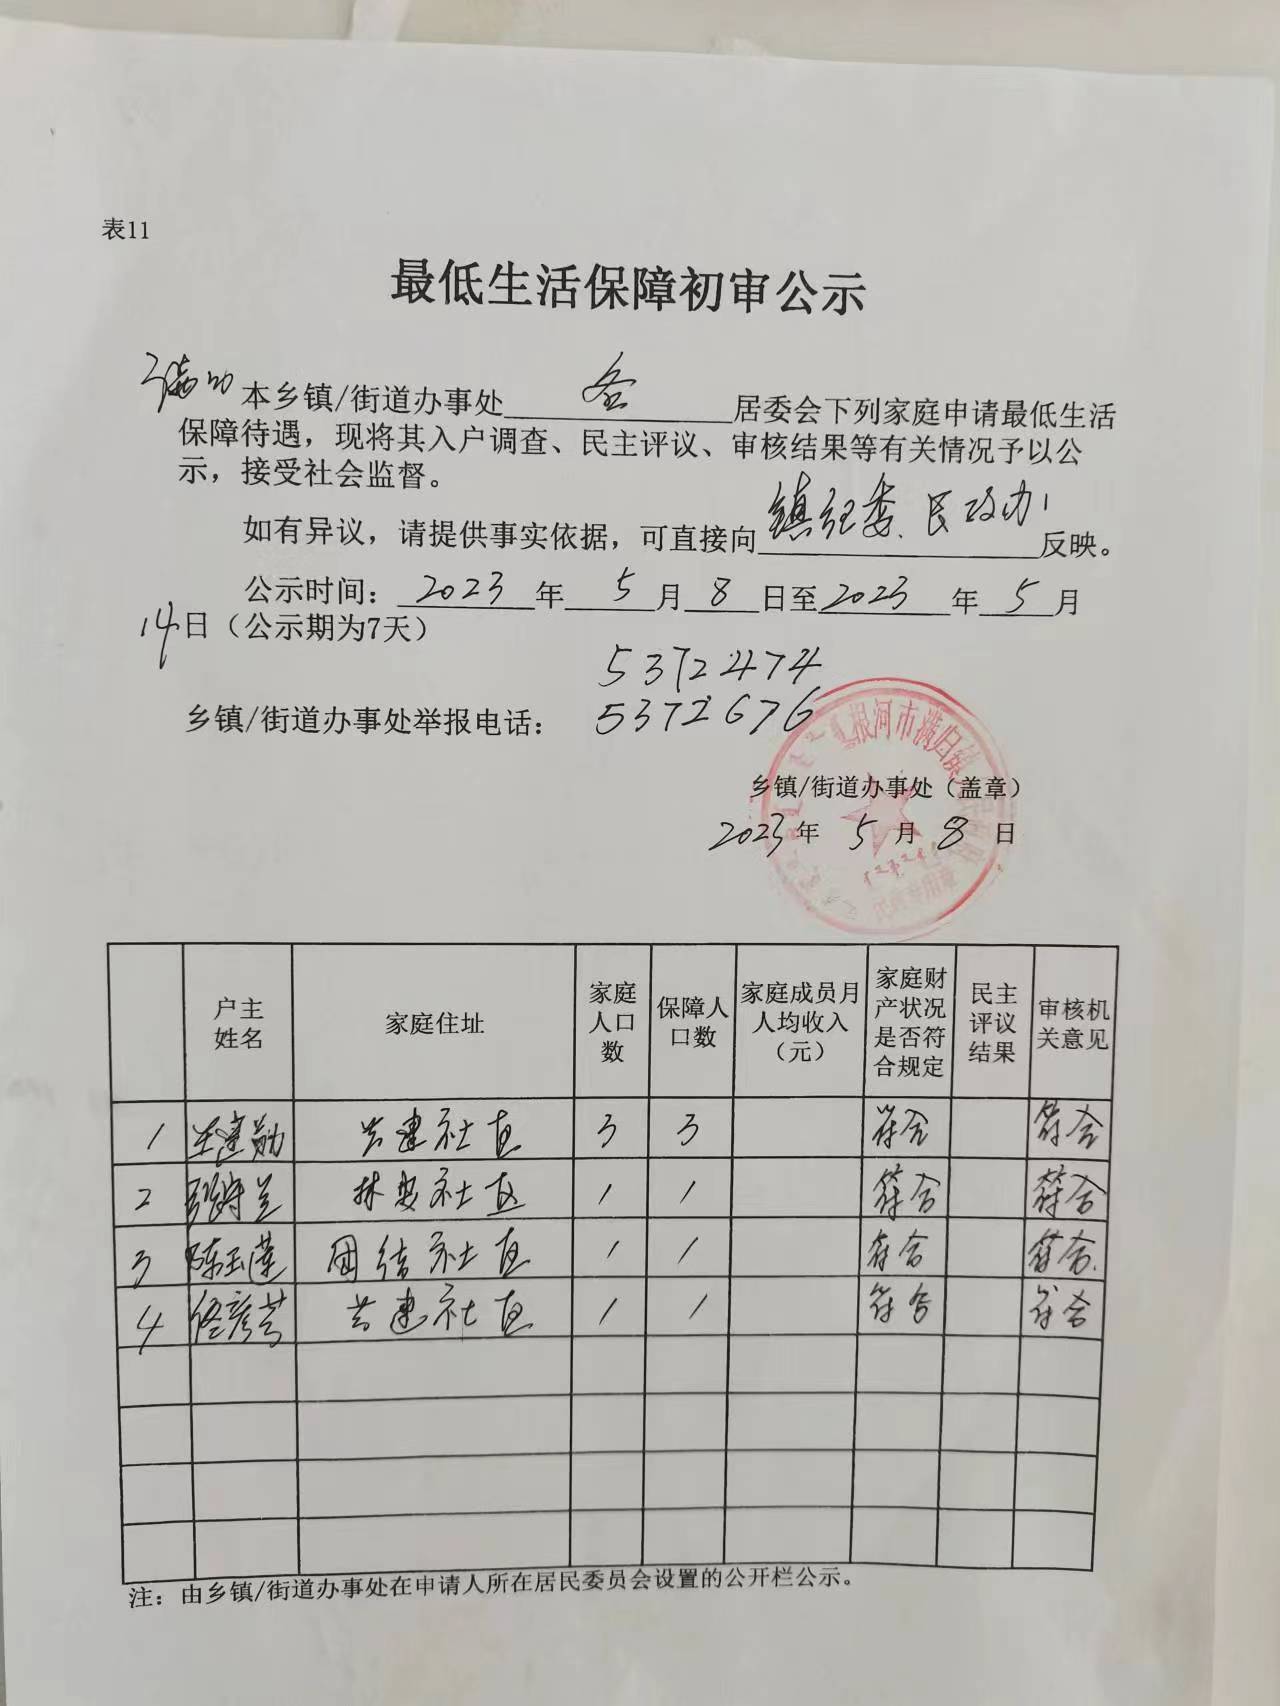 表11
最低生活保障初审公示
满归 本乡镇/街道办事处 各 居委会下列家庭申请最低生活
保障待遇，现将其入户调查、民主评议、审核结果等有关情况予以公
示，接受社会监督。
如有异议，请提供事实依据，可直接向 镇纪委、民政办 反映。
公示时间：2023年5月8日至2023年5月
14日（公示期为7天）
5372474
乡镇/街道办事处举报电话：5372676
根河市满归镇
乡镇/街道办事处（盖章）
2023年5月8日
户主姓名 家庭住址 家庭人口数 保障人口数 家庭成员月人均收入（元） 家庭财产状况是否符合规定 民主评议结果 审核机关意见
1 王建勋 共建社区 3 3 符合 符合
2 兰 林 社区 1 1 符合 符合
3 陈玉莲 团结社区 1 1 符合 符合.
4 佟彦芳 共建社区 1 1 符合 符合
注：由乡镇/街道办事处在申请人所在居民委员会设置的公开栏公示。